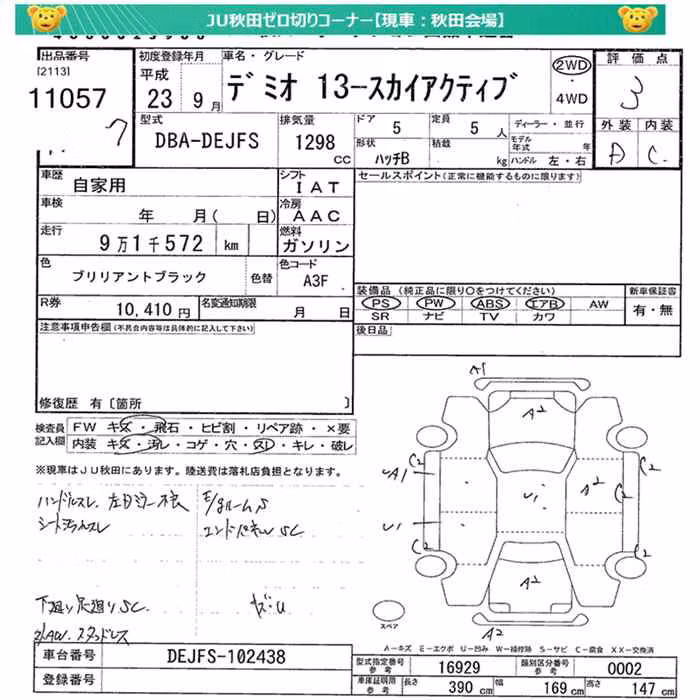 JU秋田ゼロ切りコーナー【現車：秋田会場】
出品番号
[2113]
11057
7
初度登録年月
平成
23 9月
車名・グレード
デミオ 13-スカイアクティブ
2WD
・
4WD
評価点
3
外装 内装
A C
型式
DBA-DEJFS
排気量
1298
CC
ドア
5
定員
5人
ディーラー・並行
形状
ハッチB
積載
kg
モデル年式
年
ハンドル 左・右
車歴
自家用
シフト
IAT
セールスポイント(正常に機能するものに限ります)
車検
年 月( 日)
冷房
AAC
走行
9万1千572 km
燃料
ガソリン
色
ブリリアントブラック
色替
色コード
A3F
装備品 (純正品に限り○をつけてください)
PS PW ABS エアB AW
SR ナビ TV カワ
新車保証書
有・無
R券
10,410円
名変通知期限
月 日
後日品
注意事項申告欄(不具合内容等は具体的に記入して下さい)
修復歴 有〔箇所 〕
検査員記入欄
FW キズ・飛石・ヒビ割・リペア跡・×要
内装 キズ・汚レ・コゲ・穴・スレ・キレ・破レ
※現車はJU秋田にあります。陸送費は落札店負担となります。
ハンドルスレ
下廻り足廻りSC
スタッドレス
A1
A2
C2
C2
A1
U1
A2
U1
C2
C2
A2
A2
スペア
A-キズ E-エクボ U-凹み W-補修跡 S-サビ C-腐食 XX-交換済
車台番号
DEJFS-102438
登録番号
型式指定番号
参考
16929
類別区分番号
参考
0002
車庫証明用
参考
長さ
390 cm
幅
169 cm
高さ
147 cm